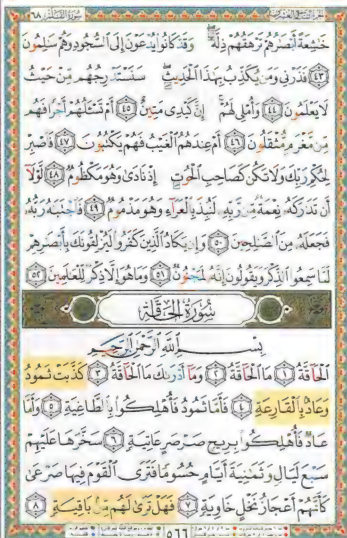 سُورَةُ القَلَمِ ٦٨
خَٰشِعَةً أَبۡصَٰرُهُمۡ تَرۡهَقُهُمۡ ذِلَّةٞۖ وَقَدۡ كَانُواْ يُدۡعَوۡنَ إِلَى ٱلسُّجُودِ وَهُمۡ سَٰلِمُونَ
٤٣ فَذَرۡنِي وَمَن يُكَذِّبُ بِهَٰذَا ٱلۡحَدِيثِۖ سَنَسۡتَدۡرِجُهُم مِّنۡ حَيۡثُ
لَا يَعۡلَمُونَ ٤٤ وَأُمۡلِي لَهُمۡۚ إِنَّ كَيۡدِي مَتِينٌ ٤٥ أَمۡ تَسۡـَٔلُهُمۡ أَجۡرٗا فَهُم
مِّن مَّغۡرَمٖ مُّثۡقَلُونَ ٤٦ أَمۡ عِندَهُمُ ٱلۡغَيۡبُ فَهُمۡ يَكۡتُبُونَ ٤٧ فَٱصۡبِرۡ
لِحُكۡمِ رَبِّكَ وَلَا تَكُن كَصَاحِبِ ٱلۡحُوتِ إِذۡ نَادَىٰ وَهُوَ مَكۡظُومٞ ٤٨ لَّوۡلَآ
أَن تَدَٰرَكَهُۥ نِعۡمَةٞ مِّن رَّبِّهِۦ لَنُبِذَ بِٱلۡعَرَآءِ وَهُوَ مَذۡمُومٞ ٤٩ فَٱجۡتَبَٰهُ رَبُّهُۥ
فَجَعَلَهُۥ مِنَ ٱلصَّٰلِحِينَ ٥٠ وَإِن يَكَادُ ٱلَّذِينَ كَفَرُواْ لَيُزۡلِقُونَكَ بِأَبۡصَٰرِهِمۡ
لَمَّا سَمِعُواْ ٱلذِّكۡرَ وَيَقُولُونَ إِنَّهُۥ لَمَجۡنُونٞ ٥١ وَمَا هُوَ إِلَّا ذِكۡرٞ لِّلۡعَٰلَمِينَ ٥٢
سُورَةُ الحَاقَّةِ
بِسۡمِ ٱللَّهِ ٱلرَّحۡمَٰنِ ٱلرَّحِيمِ
ٱلۡحَآقَّةُ ١ مَا ٱلۡحَآقَّةُ ٢ وَمَآ أَدۡرَىٰكَ مَا ٱلۡحَآقَّةُ ٣ كَذَّبَتۡ ثَمُودُ
وَعَادُۢ بِٱلۡقَارِعَةِ ٤ فَأَمَّا ثَمُودُ فَأُهۡلِكُواْ بِٱلطَّاغِيَةِ ٥ وَأَمَّا
عَادٞ فَأُهۡلِكُواْ بِرِيحٖ صَرۡصَرٍ عَاتِيَةٖ ٦ سَخَّرَهَا عَلَيۡهِمۡ
سَبۡعَ لَيَالٖ وَثَمَٰنِيَةَ أَيَّامٍ حُسُومٗاۖ فَتَرَى ٱلۡقَوۡمَ فِيهَا صَرۡعَىٰ
كَأَنَّهُمۡ أَعۡجَازُ نَخۡلٍ خَاوِيَةٖ ٧ فَهَلۡ تَرَىٰ لَهُم مِّنۢ بَاقِيَةٖ ٨
٥٦٦